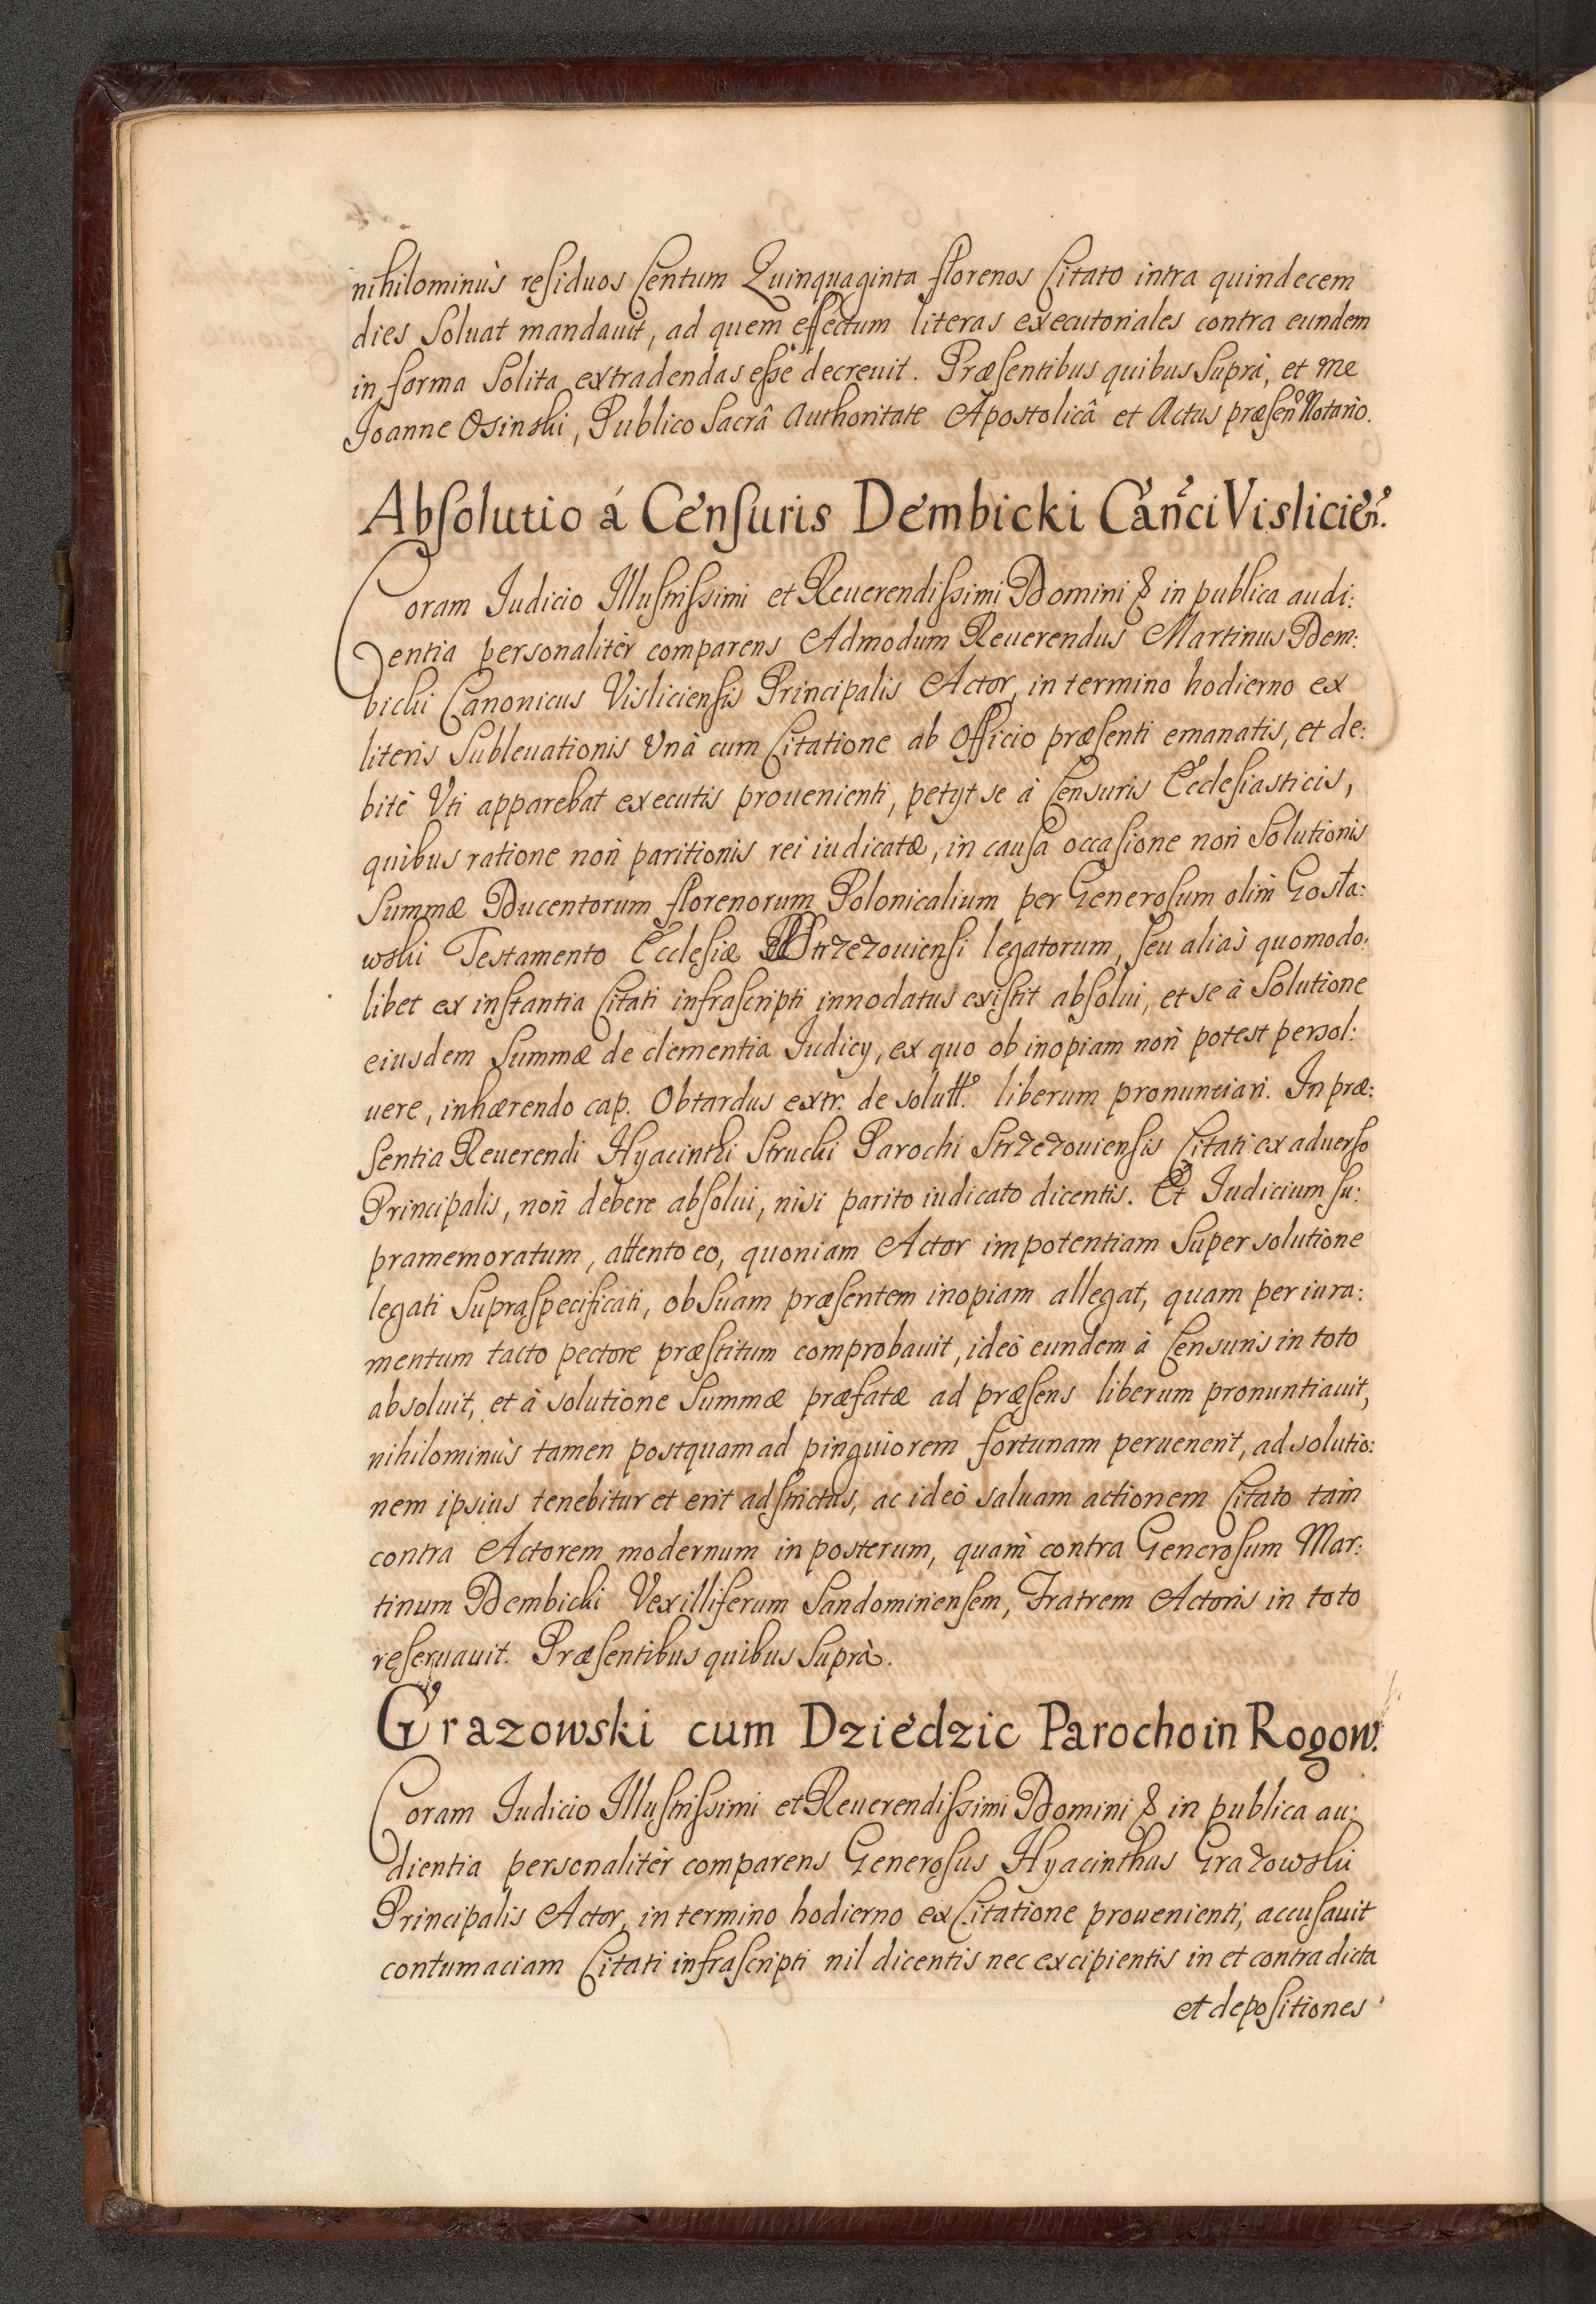 nihilominùs residuos Centum Quinquaginta florenos Citato intra quindecem
dies Soluat mandauit, ad quem effectum literas executoriales contra eundem
in forma Solita extradendas esse decreuit. Præsentibus quibus Suprà, et me
Joanne Osinski, Publico Sacrâ Authoritate Apostolicâ et Actus præsen Notario.
Absolutio á Censuris Dembicki Canci Vislicien.
Coram Judicio Illustrissimi et Reuerendissimi Domini & in publica audi:
entia personalitèr comparens Admodum Reuerendus Martinus Dem:
bicki Canonicus Visliciensis Principalis Actor, in termino hodierno ex
literis Subleuationis Vnà cum Citatione ab Officio præsenti emanatis, et de:
bitè Vti apparebat executis prouenienti, petyt se à Censuris Ecclesiasticis,
quibus ratione non paritionis rei iudicatæ, in causa occasione non Solutionis
Summæ Ducentorum florenorum Polonicalium per Generosum olim Gosta:
wski Testamento Ecclesiæ Strzezouiensi legatorum, seu aliàs quomodo:
libet ex instantia Citati infrascripti innodatus existit absolui, et se à Solutione
eiusdem Summæ de clementia Judicy, ex quo ob inopiam non potest persol:
uere, inhærendo cap. Obtardus extr. de solutt. liberum pronuntiari. In præ:
sentia Reuerendi Hyacinthi Strucki Parochi Strzezouiensis Citati ex aduerso
Principalis, non debere absolui, nisi parito iudicato dicentis. Et Judicium su:
pramemoratum, attento eo, quoniam Actor impotentiam Super solutione
legati Supraspecificati, ob Suam præsentem inopiam allegat, quam per iura:
mentum tacto pectore præstitum comprobauit, ideò eundem à Censuris in toto
absoluit, et à solutione Summæ præfatæ ad præsens liberum pronuntiauit,
nihilominùs tamen postquam ad pinguiorem fortunam peruenerit, ad solutio:
nem ipsius tenebitur et erit adstrictus, ac ideò saluam actionem Citato tam
contra Actorem modernum in posterum, quam contra Generosum Mar:
tinum Dembicki Vexilliferum Sandomiriensem, Fratrem Actoris in toto
reseruauit. Præsentibus quibus Suprà.
Grazowski cum Dziedzic Parocho in Rogow.
Coram Judicio Illustrissimi et Reuerendissimi Domini & in publica au:
dientia personalitèr comparens Generosus Hyacinthus Grazowski
Principalis Actor, in termino hodierno ex Citatione prouenienti, accusauit
contumaciam Citati infrascripti nil dicentis nec excipientis in et contra dicta
et depositiones